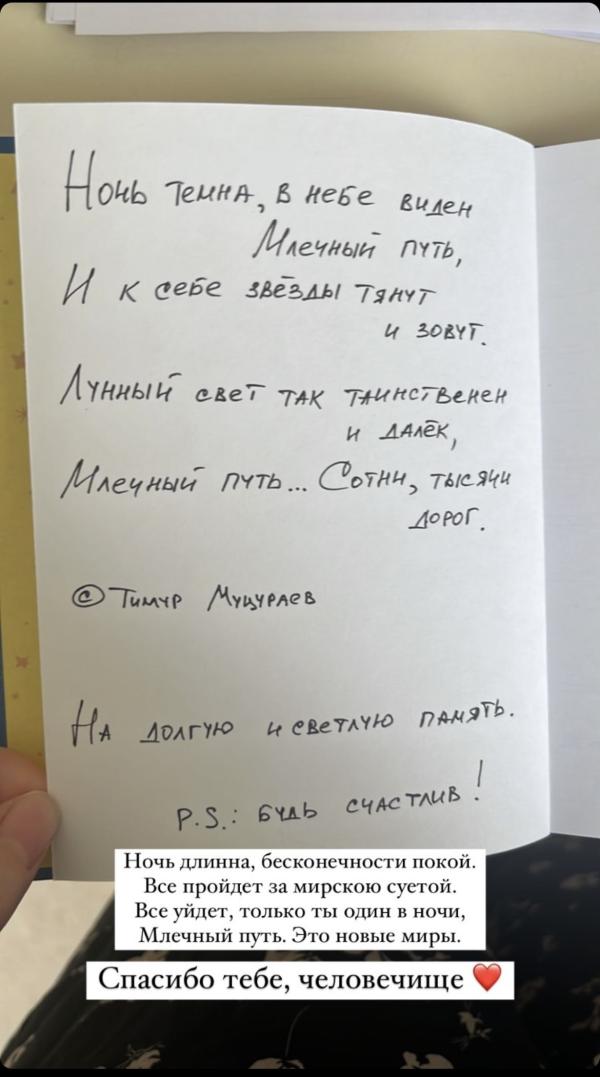 Ночь темна, в небе виден
Млечный путь,
И к себе звёзды тянут
и зовут.
Лунный свет так таинственен
и далёк,
Млечный путь... Сотни, тысячи
дорог.
© Тимур Муцураев
На долгую и светлую память.
P.S.: будь счастлив!
Ночь длинна, бесконечности покой.
Все пройдет за мирскою суетой.
Все уйдет, только ты один в ночи,
Млечный путь. Это новые миры.
Спасибо тебе, человечище ❤️